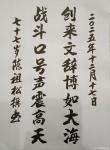 二〇二五年十二月十二日
创来文辞博如大海
战斗口号声震高天
七十七岁陈祖松撰书